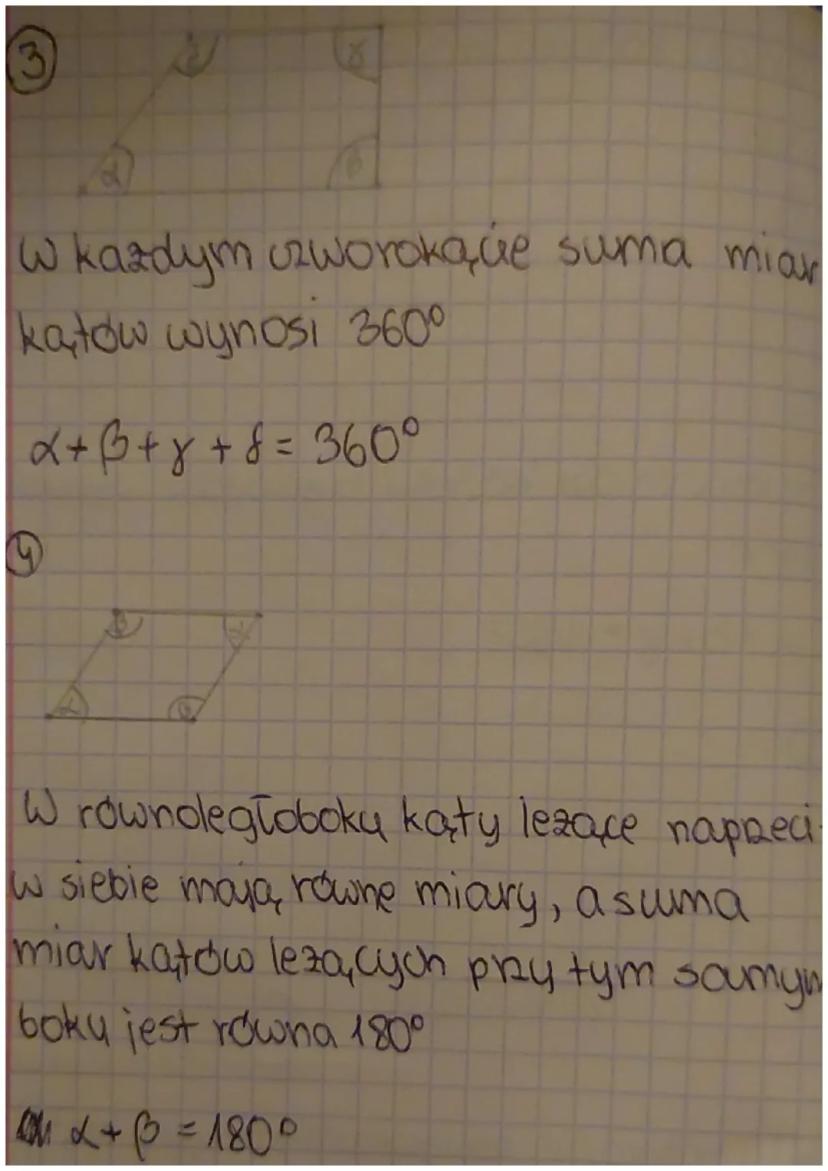 3
δ γ
α β
W każdym czworokącie suma miar
kątów wynosi 360°
α + β + γ + δ = 360°
4
β α
α β
W równoległoboku kąty leżące naprzeci
w siebie mają równe miary, a suma
miar kątów leżących przy tym samym
boku jest równa 180°
α + β = 180°